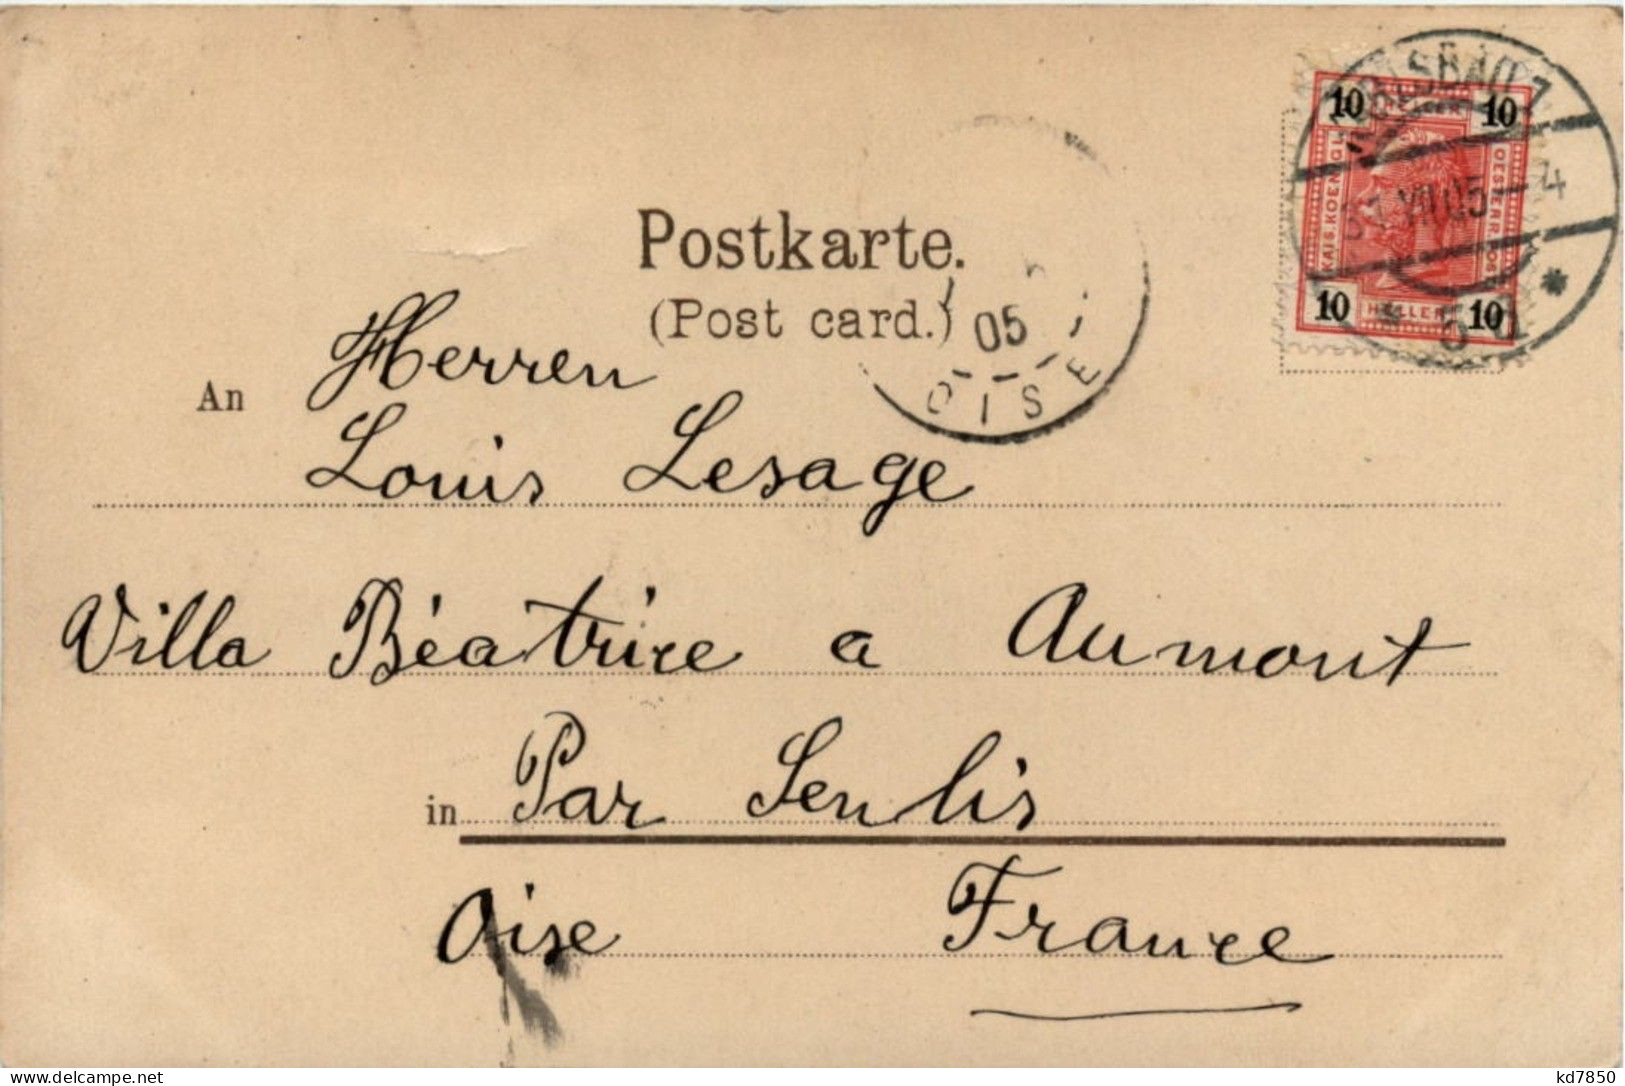 Postkarte.
(Post card.)
An Herren
Louis Lesage
Villa Béatrice a Aumont
in Par Senlis
Oise France
10 HELLER 10
KAIS. KOENIGL. OESTERR. POST
10 HELLER 10
VII 05-4
05
OISE
kd7850